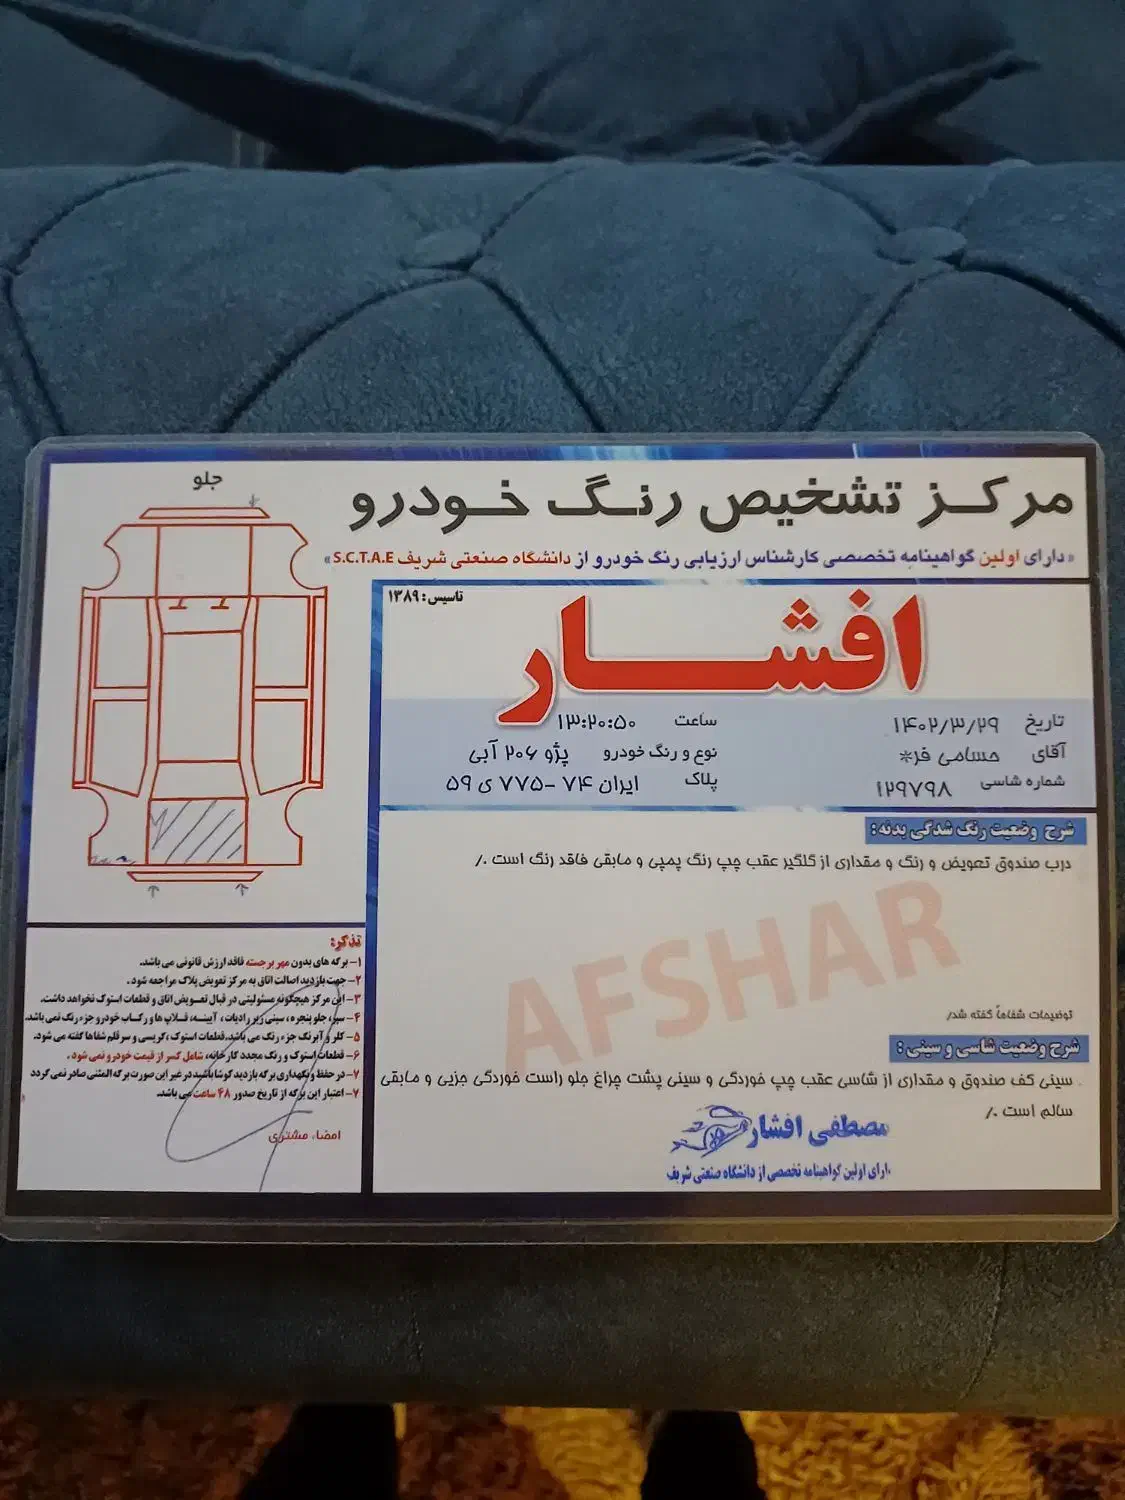 جلو
مرکز تشخیص رنگ خودرو
«دارای اولین گواهینامه تخصصی کارشناس ارزیابی رنگ خودرو از دانشگاه صنعتی شریف S.C.T.A.E»
تاسیس: ۱۳۸۹
افشار
تاریخ ۱۴۰۲/۳/۲۹ ساعت ۱۳:۲۰:۵۰
آقای حسامی فر* نوع و رنگ خودرو پژو ۲۰۶ آبی
شماره شاسی ۱۲۹۷۹۸ پلاک ایران ۷۴ -۷۷۵ ی ۵۹
شرح وضعیت رنگ شدگی بدنه:
درب صندوق تعویض و رنگ و مقداری از گلگیر عقب چپ رنگ پمپی و مابقی فاقد رنگ است ./
AFSHAR
توضیحات شفاهاً گفته شد/
شرح وضعیت شاسی و سینی:
سینی کف صندوق و مقداری از شاسی عقب چپ خوردگی و سینی پشت چراغ جلو راست خوردگی جزیی و مابقی
سالم است ./
مصطفی افشار
دارای اولین گواهینامه تخصصی از دانشگاه صنعتی شریف
تذکر:
۱- برگه های بدون مهر برجسته فاقد ارزش قانونی می باشد.
۲- جهت بازدید اصالت اتاق به مرکز تعویض پلاک مراجعه شود.
۳- این مرکز هیچگونه مسئولیتی در قبال تعویض اتاق و قطعات استوک نخواهد داشت.
۴- سپر، جلو پنجره، سینی زیر رادیات، آیینه، قلاب ها و رکاب خودرو جزء رنگ نمی باشد.
۵- کلر و آبرنگ جزء رنگ می باشد. قطعات استوک، کریسی و سر قلم شفاها گفته می شود.
۶- قطعات استوک و رنگ مجدد کارخانه، شامل کسر از قیمت خودرو نمی شود.
۷- در حفظ و نگهداری برگه بازدید کوشا باشید در غیر این صورت برگه المثنی صادر نمی گردد
۷- اعتبار این برگه از تاریخ صدور ۴۸ ساعت می باشد.
امضاء مشتری